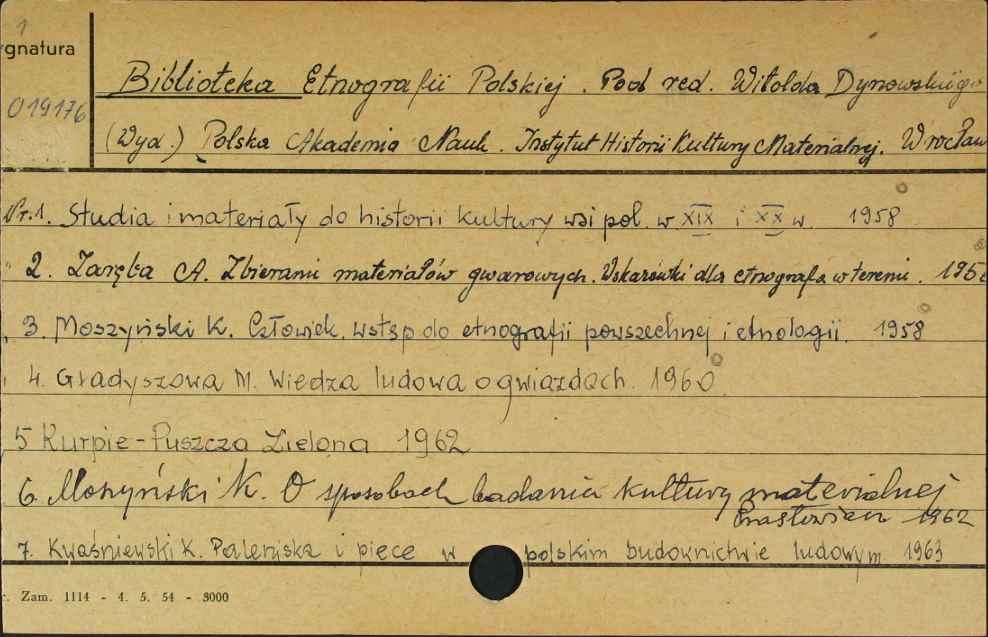 1
ygnatura
019176
Biblioteka Etnografii Polskiej. Pod red. Witolda Dynowskiego
(Wyd.) Polska Akademia Nauk. Instytut Historii Kultury Materialnej. Wrocław
Nr.1. Studia i materiały do historii kultury wsi pol. w XIX i XX w. 1958
" 2. Zaręba A. Zbieranie materiałów gwarowych. Wskazówki dla etnografa w terenie. 195
" 3. Moszyński K. Człowiek. Wstęp do etnografii powszechnej i etnologii. 1958
" 4. Gładyszowa M. Wiedza ludowa o gwiazdach. 1960
5 Kurpie - Puszcza Zielona 1962
6. Moszyński K. O sposobach badania kultury materialnej
Prasłowian 1962
7. Kwaśniewski K. Paleniska i piece w polskim budownictwie ludowym 1963
r. Zam. 1114 - 4. 5. 54 - 3000